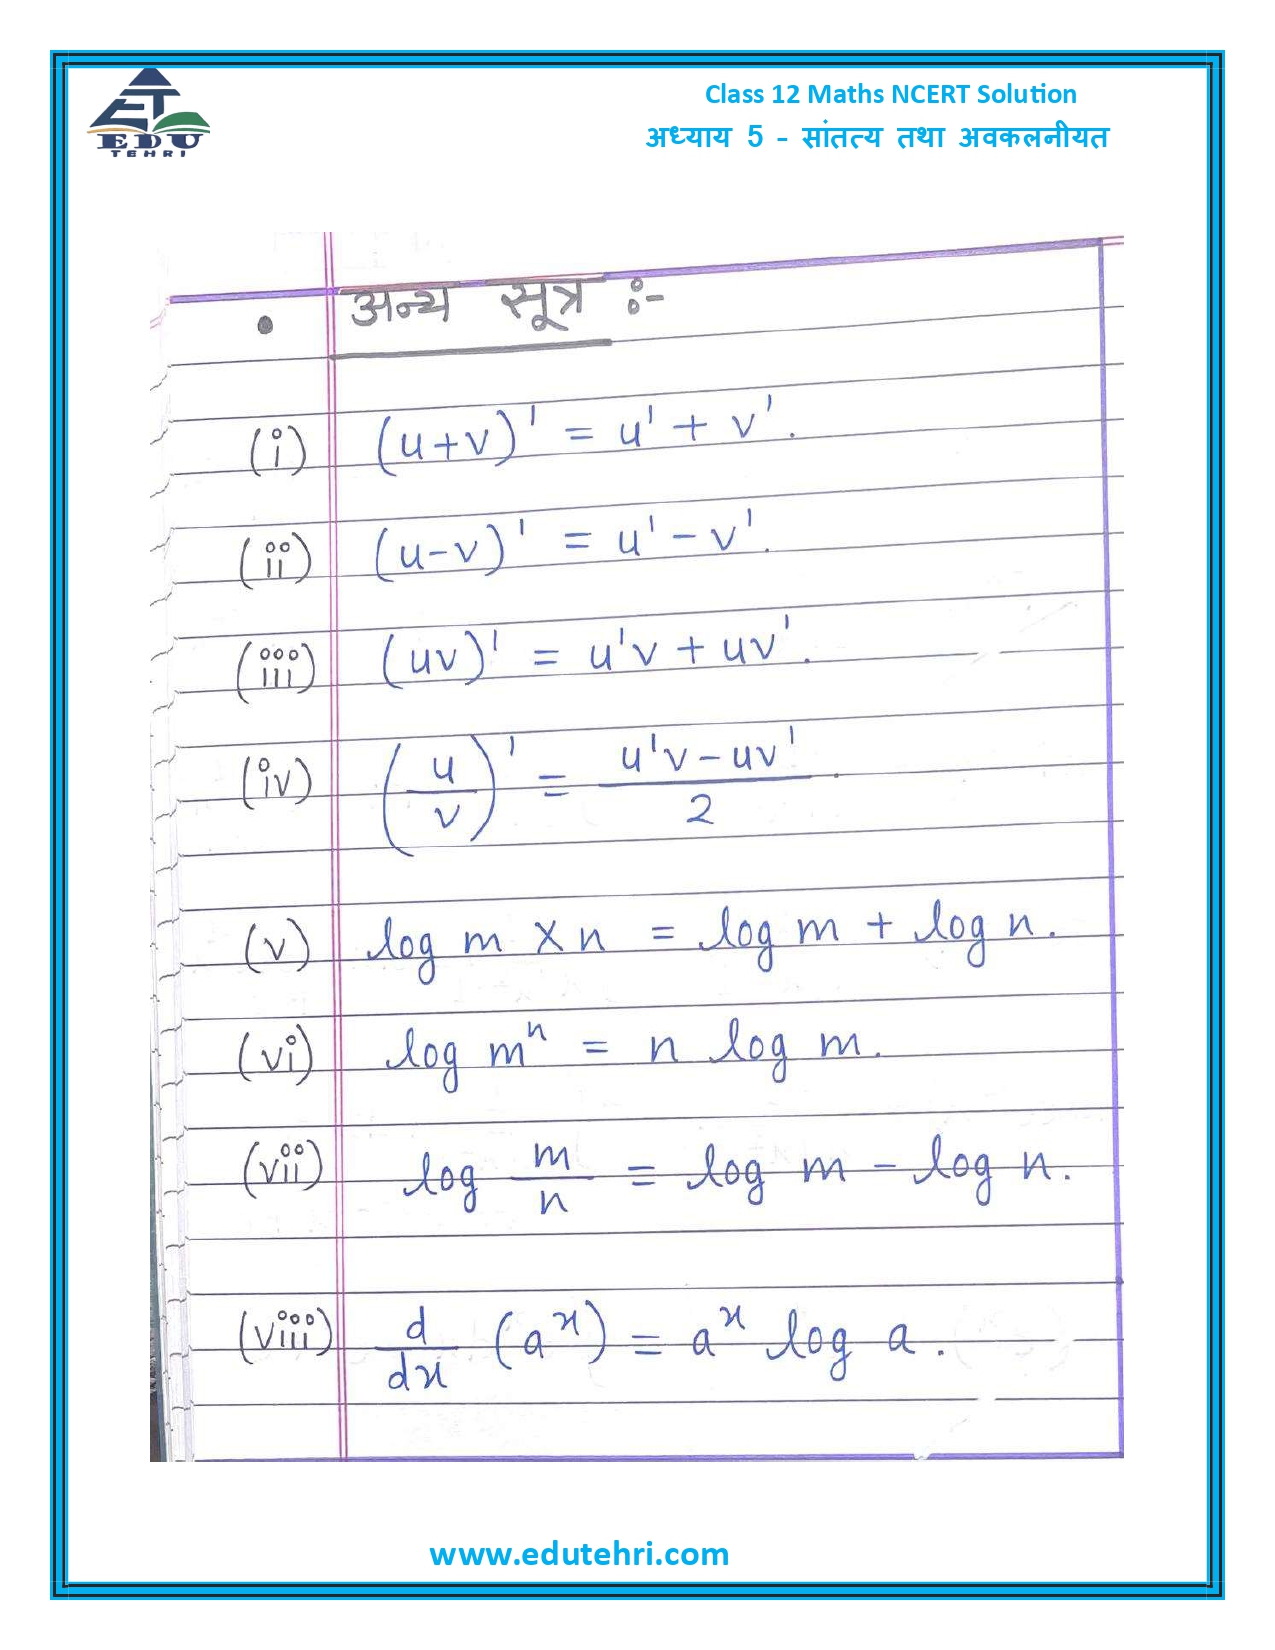 EDU
TEHRI
Class 12 Maths NCERT Solution
अध्याय 5 - सांतत्य तथा अवकलनीयत
• अन्य सूत्र :-
(i) (u+v)' = u' + v'.
(ii) (u-v)' = u' - v'.
(iii) (uv)' = u'v + uv'.
(iv) (u/v)' = (u'v - uv')/2.
(v) log m × n = log m + log n.
(vi) log mⁿ = n log m.
(vii) log m/n = log m - log n.
(viii) d/dx (aˣ) = aˣ log a.
www.edutehri.com